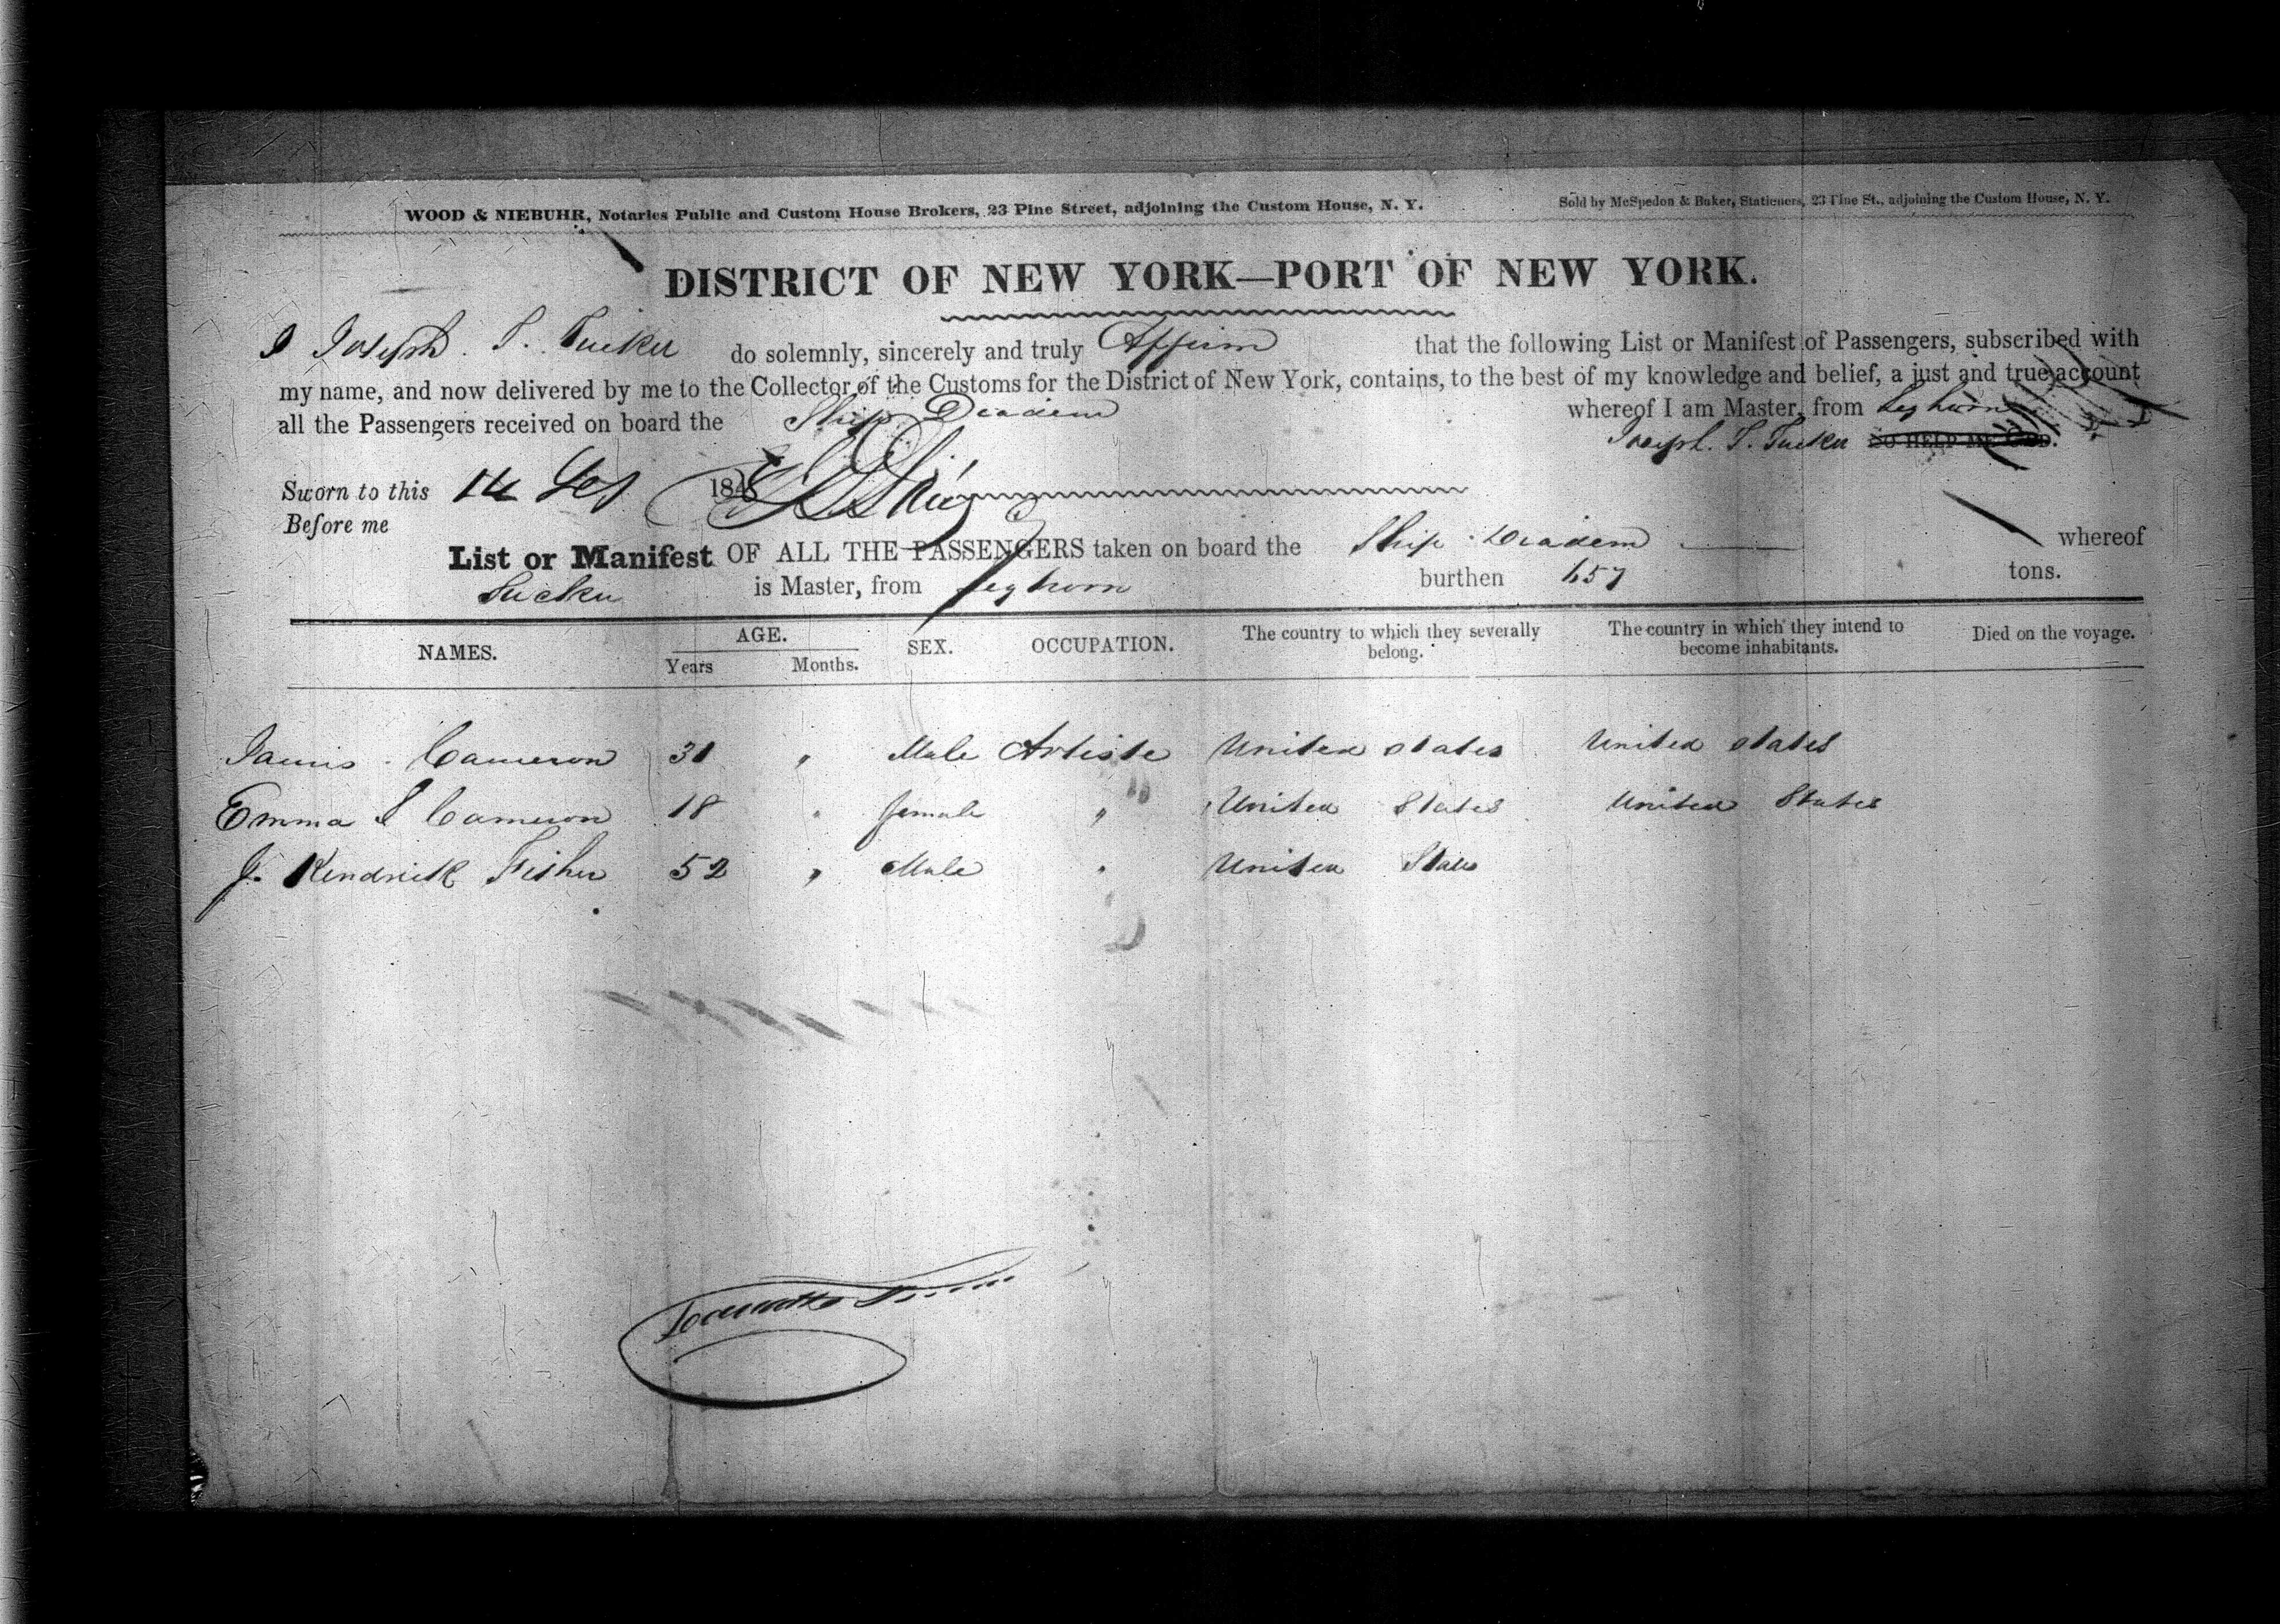 WOOD & NIEBUHR, Notaries Public and Custom House Brokers, 23 Pine Street, adjoining the Custom House, N. Y.
Sold by McSpedon & Baker, Stationers, 23 Pine St., adjoining the Custom House, N. Y.
DISTRICT OF NEW YORK—PORT OF NEW YORK.
I Joseph. S. Tucker do solemnly, sincerely and truly Affirm that the following List or Manifest of Passengers, subscribed with
my name, and now delivered by me to the Collector of the Customs for the District of New York, contains, to the best of my knowledge and belief, a just and true account
all the Passengers received on board the Ship Diadem whereof I am Master, from Leghorn
Joseph. S. Tucker SO HELP ME GOD.
Sworn to this 14 184
Before me
List or Manifest OF ALL THE PASSENGERS taken on board the Ship Diadem whereof
Tucker is Master, from Leghorn burthen 657 tons.
NAMES. AGE. SEX. OCCUPATION. The country to which they severally belong. The country in which they intend to become inhabitants. Died on the voyage.
Years Months.
James Cameron 31 " Male Artiste United States United States
Emma S Cameron 18 " female " United States United States
J. Kendrick Fisher 52 " Male " United States